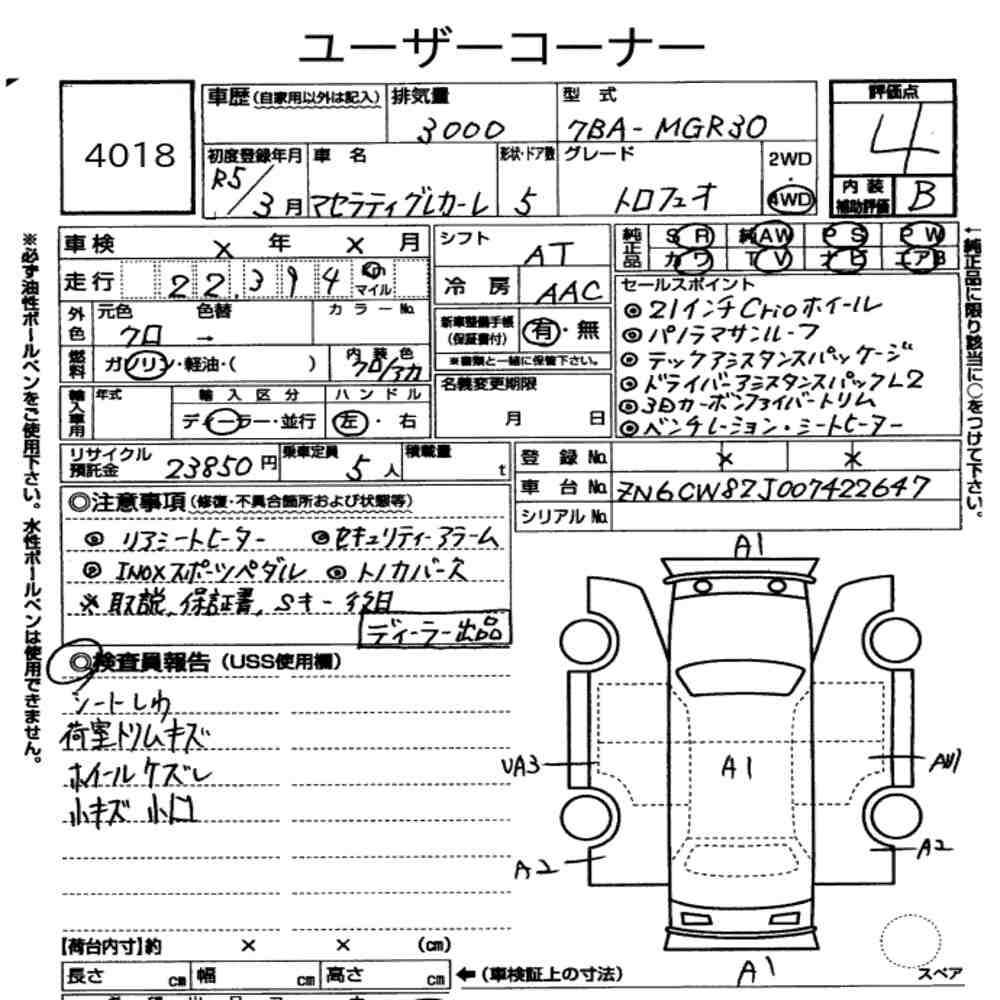 ユーザーコーナー
4018
車歴(自家用以外は記入) 排気量 3000 型 式 7BA-MGR30 評価点 4
初度登録年月 R5/3月 車 名 マセラティグレカーレ 形状・ドア数 5 グレード トロフェオ 2WD・4WD 内装補助評価 B
車検 × 年 × 月 シフト AT 純正品 SR 純AW PS PW
カワ TV ナビ エアB
走行 22,394 km マイル 冷房 AAC セールスポイント
◎21インチCrioホイール
外色 元色 クロ 色替 → カラーNo. 新車整備手帳(保証書付) 有・無 ◎パノラマサンルーフ
燃料 ガソリン・軽油・( ) 内装色 クロ/アカ ※書類と一緒に保管下さい。 ◎テックアシスタンスパッケージ
◎ドライバーアシスタンスパックL2
輸入車用 年式 輸入区分 ディーラー・並行 ハンドル 左・右 名義変更期限 月 日 ◎3Dカーボンファイバートリム
◎ベンチレーション・シートヒーター
リサイクル預託金 23850円 乗車定員 5人 積載量 t 登録No. × ×
車台No. ZN6CW82J007422647
シリアルNo.
◎注意事項(修復・不具合箇所および状態等)
◎リアシートヒーター ◎セキュリティーアラーム
◎INOXスポーツペダル ◎トノカバース
※取説,保証書,Sキー後日
ディーラー出品
◎検査員報告(USS使用欄)
シートしわ
荷室トリムキズ
ホイールケズレ
小キズ 小凹
A1
UA3 A1 AU1
A2 A2
A1
スペア
【荷台内寸】約 × × (cm)
長さ cm 幅 cm 高さ cm ←(車検証上の寸法)
※必ず油性ボールペンをご使用下さい。水性ボールペンは使用できません。
←純正品に限り該当に○をつけて下さい。